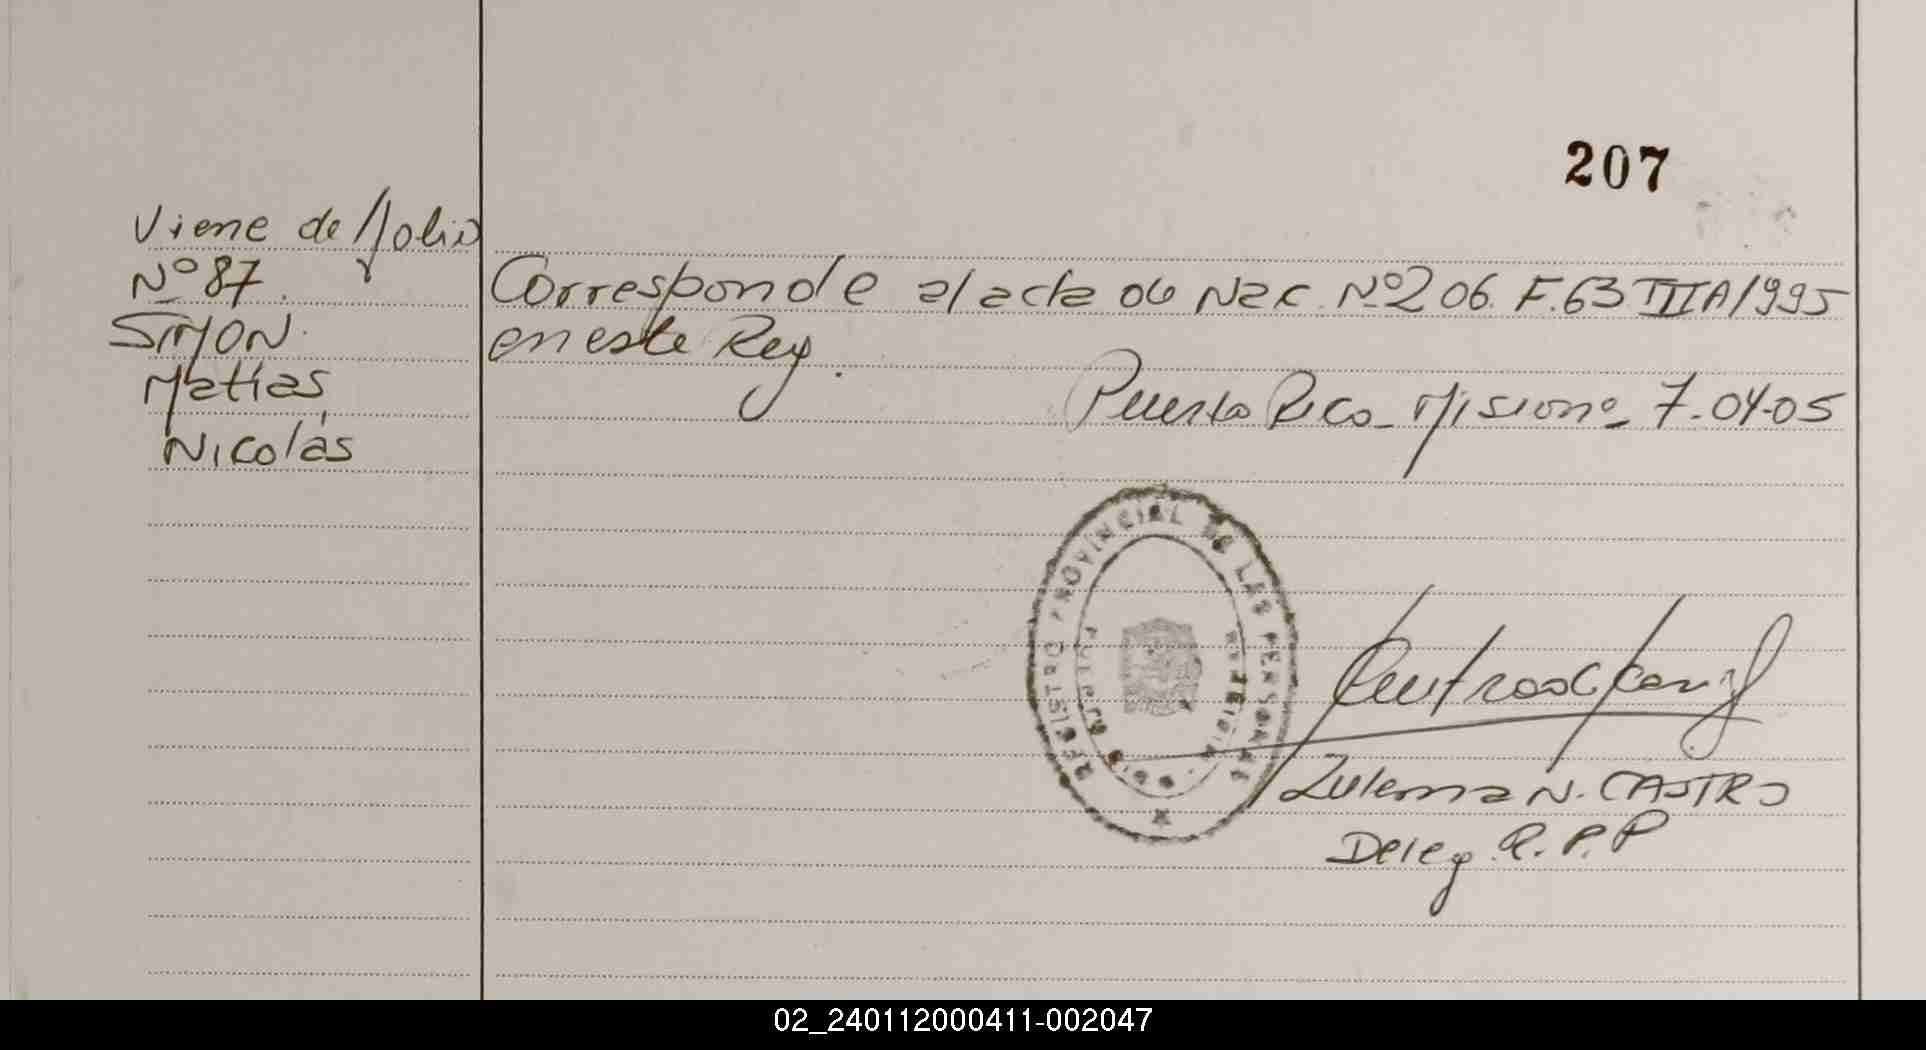 207
Viene de folio
Nº 87.
SIMON.
Matías,
Nicolás
Corresponde al acta de Nac. Nº 206. F. 63 T III A/1995
en este Reg.
Puerto Rico - Misiones 7-04-05
REGISTRO PROVINCIAL DE LAS PERSONAS
Zulema N. CASTRO
Deleg. R. P. P
02_240112000411-002047